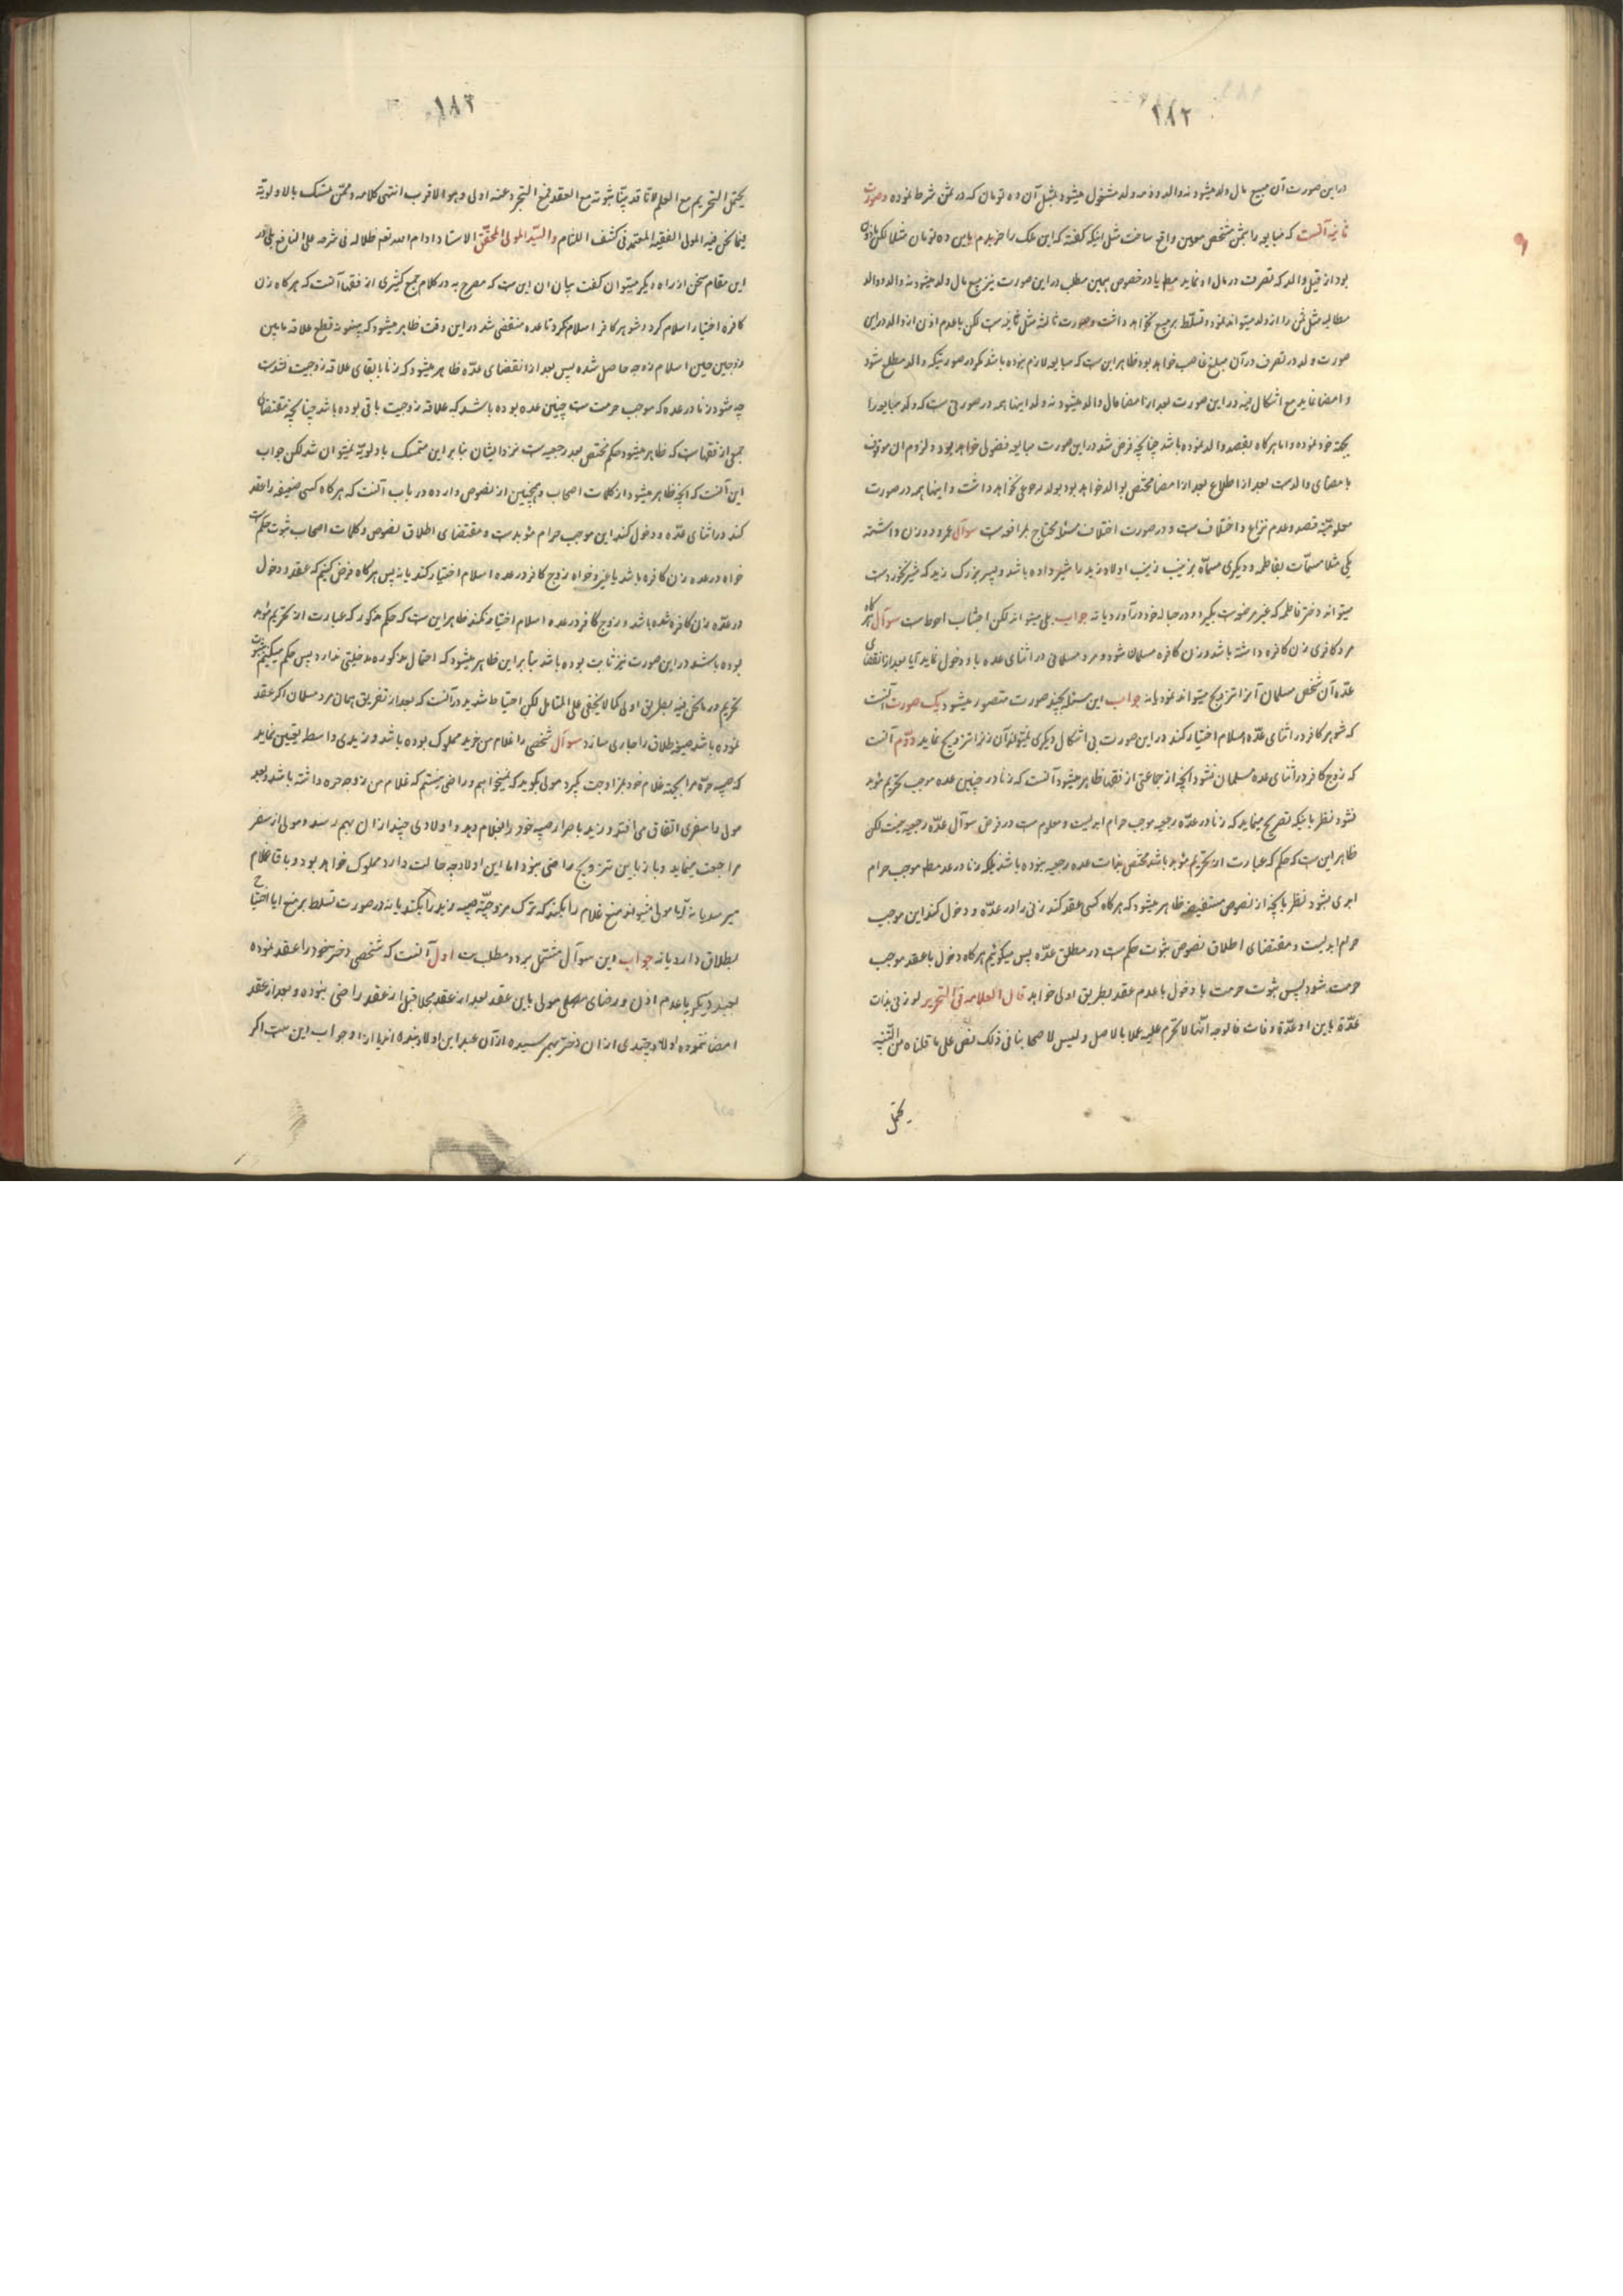 ۱۸۲
در این صورت آن مبیع مال ولد میشود نه والد و ذمه ولد مشغول میشود بمثل آن ده تومان که در ثمن شرط نموده و صورت
ثانیه آنست که مبایعه را بثمن مشخص معین واقع ساخت مثل اینکه گفته که این ملک را خریدم باین ده تومان مثلا لکن ماذون
بود از قبل والد که تصرف در مال او نماید مطلقا یا در خصوص همین مطلب در این صورت نیز مبیع مال ولد میشود نه والد و والد
مطالبه مثل ثمن را از ولد میتواند نمود و تسلط بر مبیع نخواهد داشت و صورت ثالثه مثل ثانیه است لکن با عدم اذن از والد در این
صورت ولد در تصرف در آن مبلغ غاصب خواهد بود ظاهر این ست که مبایعه لازم نبوده باشد مگر در صورتیکه والد مطلع شود
و امضا نماید مع اشکال فیه در این صورت بعد از امضا مال والد میشود نه ولد اینها همه در صورتی ست که ولد مبایعه را
بجهة خود نموده و اما هرگاه بقصد والد نموده باشد چنانچه فرض شد در این صورت مبایعه فضولی خواهد بود و لزوم آن موقوف
با مضای والد ست بعد از اطلاع بعد از امضا مختص بوالد خواهد بود بولد رجوعی نخواهد داشت و اینها همه در صورت
معلومیة قصد و عدم نزاع و اختلاف ست و در صورت اختلاف مسئله محتاج بمرافعه ست سوآل عمرو دو زن داشته
یکی مثلا مسمات بفاطمه و دیگری مسماة بزینب زینب اولاد زید را شیر داده باشد و پسر بزرگ زید که شیر نخورده ست
میتواند دختر فاطمه که غیر مرضعه ست بگیرد و در حباله خود درآورد یا نه جواب بلی میتواند لکن اجتناب احوط ست سوآل هرگاه
مرد کافری زن کافره داشته باشد و زن کافره مسلمان شود و مرد مسلمانی در اثنای عده با او دخول نماید آیا بعد از انقضای
عدّه آن شخص مسلمان آنرا تزویج میتواند نمود یا نه جواب این مسئله بچند صورت متصور میشود یک صورت آنست
که شوهر کافر در اثنای عدّه اسلام اختیار کند در این صورت بی اشکال دیگری نمیتواند آن زنرا تزویج نماید دوّم آنست
که زوج کافر در اثنای عده مسلمان نشود آنچه از جماعتی از فقها ظاهر میشود آنست که زنا در چنین عده موجب تحریم مؤبد
نشود نظر باینکه تصریح مینماید که زنا در عدّه رجعیه موجب حرام ابدیست و معلوم ست در فرض سوآل عدّه رجعیه نیست لکن
ظاهر این ست که حکم که عبارت از تحریم مؤبد باشد مختص بذات عده رجعیه نبوده باشد بلکه زنا در عده مطلقا موجب حرام
ابدی شود نظر بآنچه از نصوص مستفیضه ظاهر میشود که هرگاه کسی عقد کند زنی را در عدّه و دخول کند این موجب
حرام ابدیست و مقتضای اطلاق نصوص ثبوت حکم ست در مطلق عدّه پس میگوئیم هرگاه دخول با عقد موجب
حرمت شود پس ثبوت حرمت با دخول با عدم عقد بطریق اولی خواهد قال العلامه فی التحریر لو زنی بذات
عدّة باین او عدّة وفات فالوجه انّها لا تحرم علیه عملا بالاصل و لیس لاصحابنا فی ذلک نص علی ما قلناه من التنبیه
یحتمل
۱۸۳
یحتمل التحریم مع العلم لانّا قد بیّنا ثبوته مع العقد فمع التجرد عنه اولی و هو الاقرب انتهی کلامه و ممّن تمسک بالاولویّة
فیما نحن فیه المولی الفقیه المعتمد فی کشف اللثام والسیّد المولی المحقّق الاستاد ادام الله تعم ظلاله فی شرحه علی النافع بلی در
این مقام سخن از راه دیگر میتوان گفت بیان آن این ست که مصرح به در کلام جمع کثیری از فقها آنست که هرگاه زن
کافره اختیار اسلام کرد و شوهر کافر اسلام نکرد تا عده منقضی شد در این وقت ظاهر میشود که بینونه و قطع علاقه ما بین
زوجین حین اسلام زوجه حاصل شده پس بعد از انقضای عدّه ظاهر میشود که زنا با بقای علاقه زوجیت نشده ست
چه میشود زنا در عده که موجب حرمت ست چنین عده بوده باشد که علاقه زوجیت باقی بوده باشد چنانچه مقتضای
جمعی از فقها ست که ظاهر میشود حکم مختص بعده رجعیه ست نزد ایشان بنابر این متمسک باولویّة نمیتوان شد لکن جواب
این آنست که آنچه ظاهر میشود از کلمات اصحاب و همچنین از نصوص وارده در باب آنست که هرگاه کسی ضعیفه را عقد
کند در اثنای عدّه و دخول کند این موجب حرام مؤبد ست و مقتضای اطلاق نصوص و کلمات اصحاب ثبوت حکم ست
خواه در عده زن کافره باشد یا غیر و خواه زوج کافر در عده اسلام اختیار کند یا نه پس هرگاه فرض کنیم که عقد و دخول
در عدّه زن کافره شده باشد و زوج کافر در عده اسلام اختیار نکند ظاهر این ست که حکم مذکور که عبارت از تحریم مؤبد
بوده باشد در این صورت نیز ثابت بوده باشد بنابر این ظاهر میشود که احتمال مذکوره مدخلیتی ندارد پس حکم میکنیم بثبوت
تحریم در ما نحن فیه بطریق اولی کما لا یخفی علی المتامل لکن احتیاط شدید در آنست که بعد از تفریق همان مرد مسلمان اگر عقد
نموده باشد صیغه طلاق را جاری سازد سوآل شخصی را غلام من خرید مملوک بوده باشد و زیدی واسطه تعیین نماید
که صبیه حرّه مرا بجهة غلام خود بمزاوجت بگیرد مولی بگوید که نمیخواهم و راضی نیستم که غلام من زوجه حره داشته باشد و بعد
مولی را سفری اتفاق می افتد و زید با صرار صبیه خود را بغلام دهد و اولادی چند از ان بهم رسد و مولی از سفر
مراجعت مینماید و باز باین تزویج راضی نبود اما این اولاد چه حالت دارد مملوک خواهد بود و با قا غلام
میرسد یا نه آیا مولی میتواند منع غلام را بکند که ترک مزوجیّة صبیه زید را بکند یا نه در صورت تسلط بر منع ایا احتیاج
بطلاق دارد یا نه جواب این سوآل مشتمل بر دو مطلب ست اول آنست که شخصی دختر خود را عقد نموده
بعبد دیگر با عدم اذن و رضای مولی باین عقد بعد از عقد مجلا قبل از عقد راضی نبوده و بعد از عقد
امضا ننموده اولاد چندی از ان دختر بهم رسیده از آن عبد این اولاد بنده اند یا ازاد جواب این ست اگر